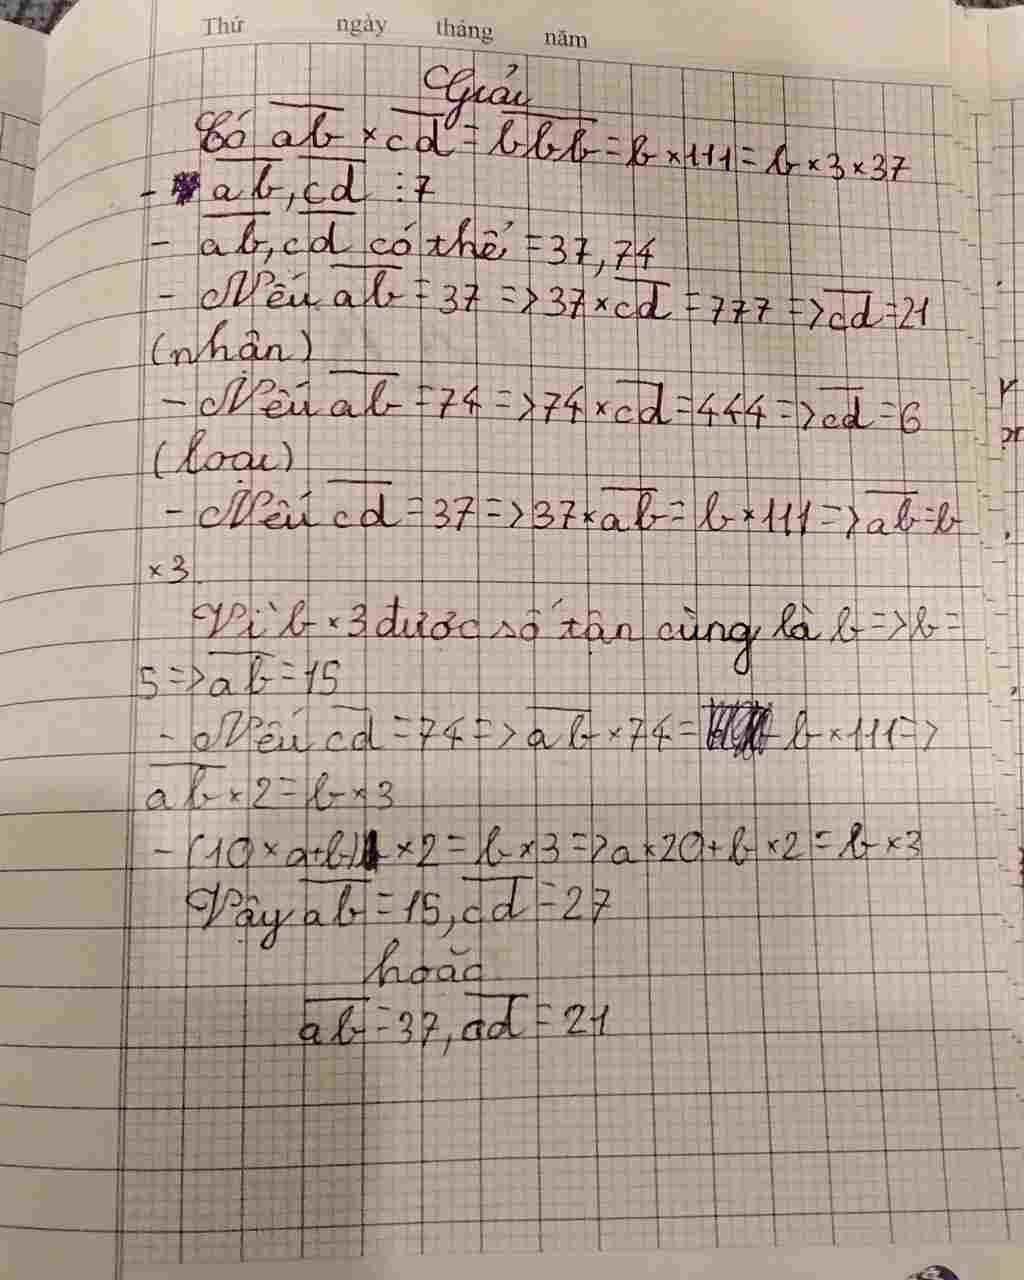 Thứ ngày tháng năm
Giải
Có ab × cd = bbb = b × 111 = b × 3 × 37
- ab, cd ⋮ 7
- ab, cd có thể = 37, 74
- Nếu ab = 37 => 37 × cd = 777 => cd = 21
(nhận)
- Nếu ab = 74 => 74 × cd = 444 => cd = 6
(loại)
- Nếu cd = 37 => 37 × ab = b × 111 => ab = b
× 3
Vì b × 3 được số tận cùng là b => b =
5 => ab = 15
- Nếu cd = 74 => ab × 74 = b × 111 =>
ab × 2 = b × 3
- (10 × a + b) × 2 = b × 3 => a × 20 + b × 2 = b × 3
Vậy ab = 15, cd = 27
hoặc
ab = 37, cd = 21